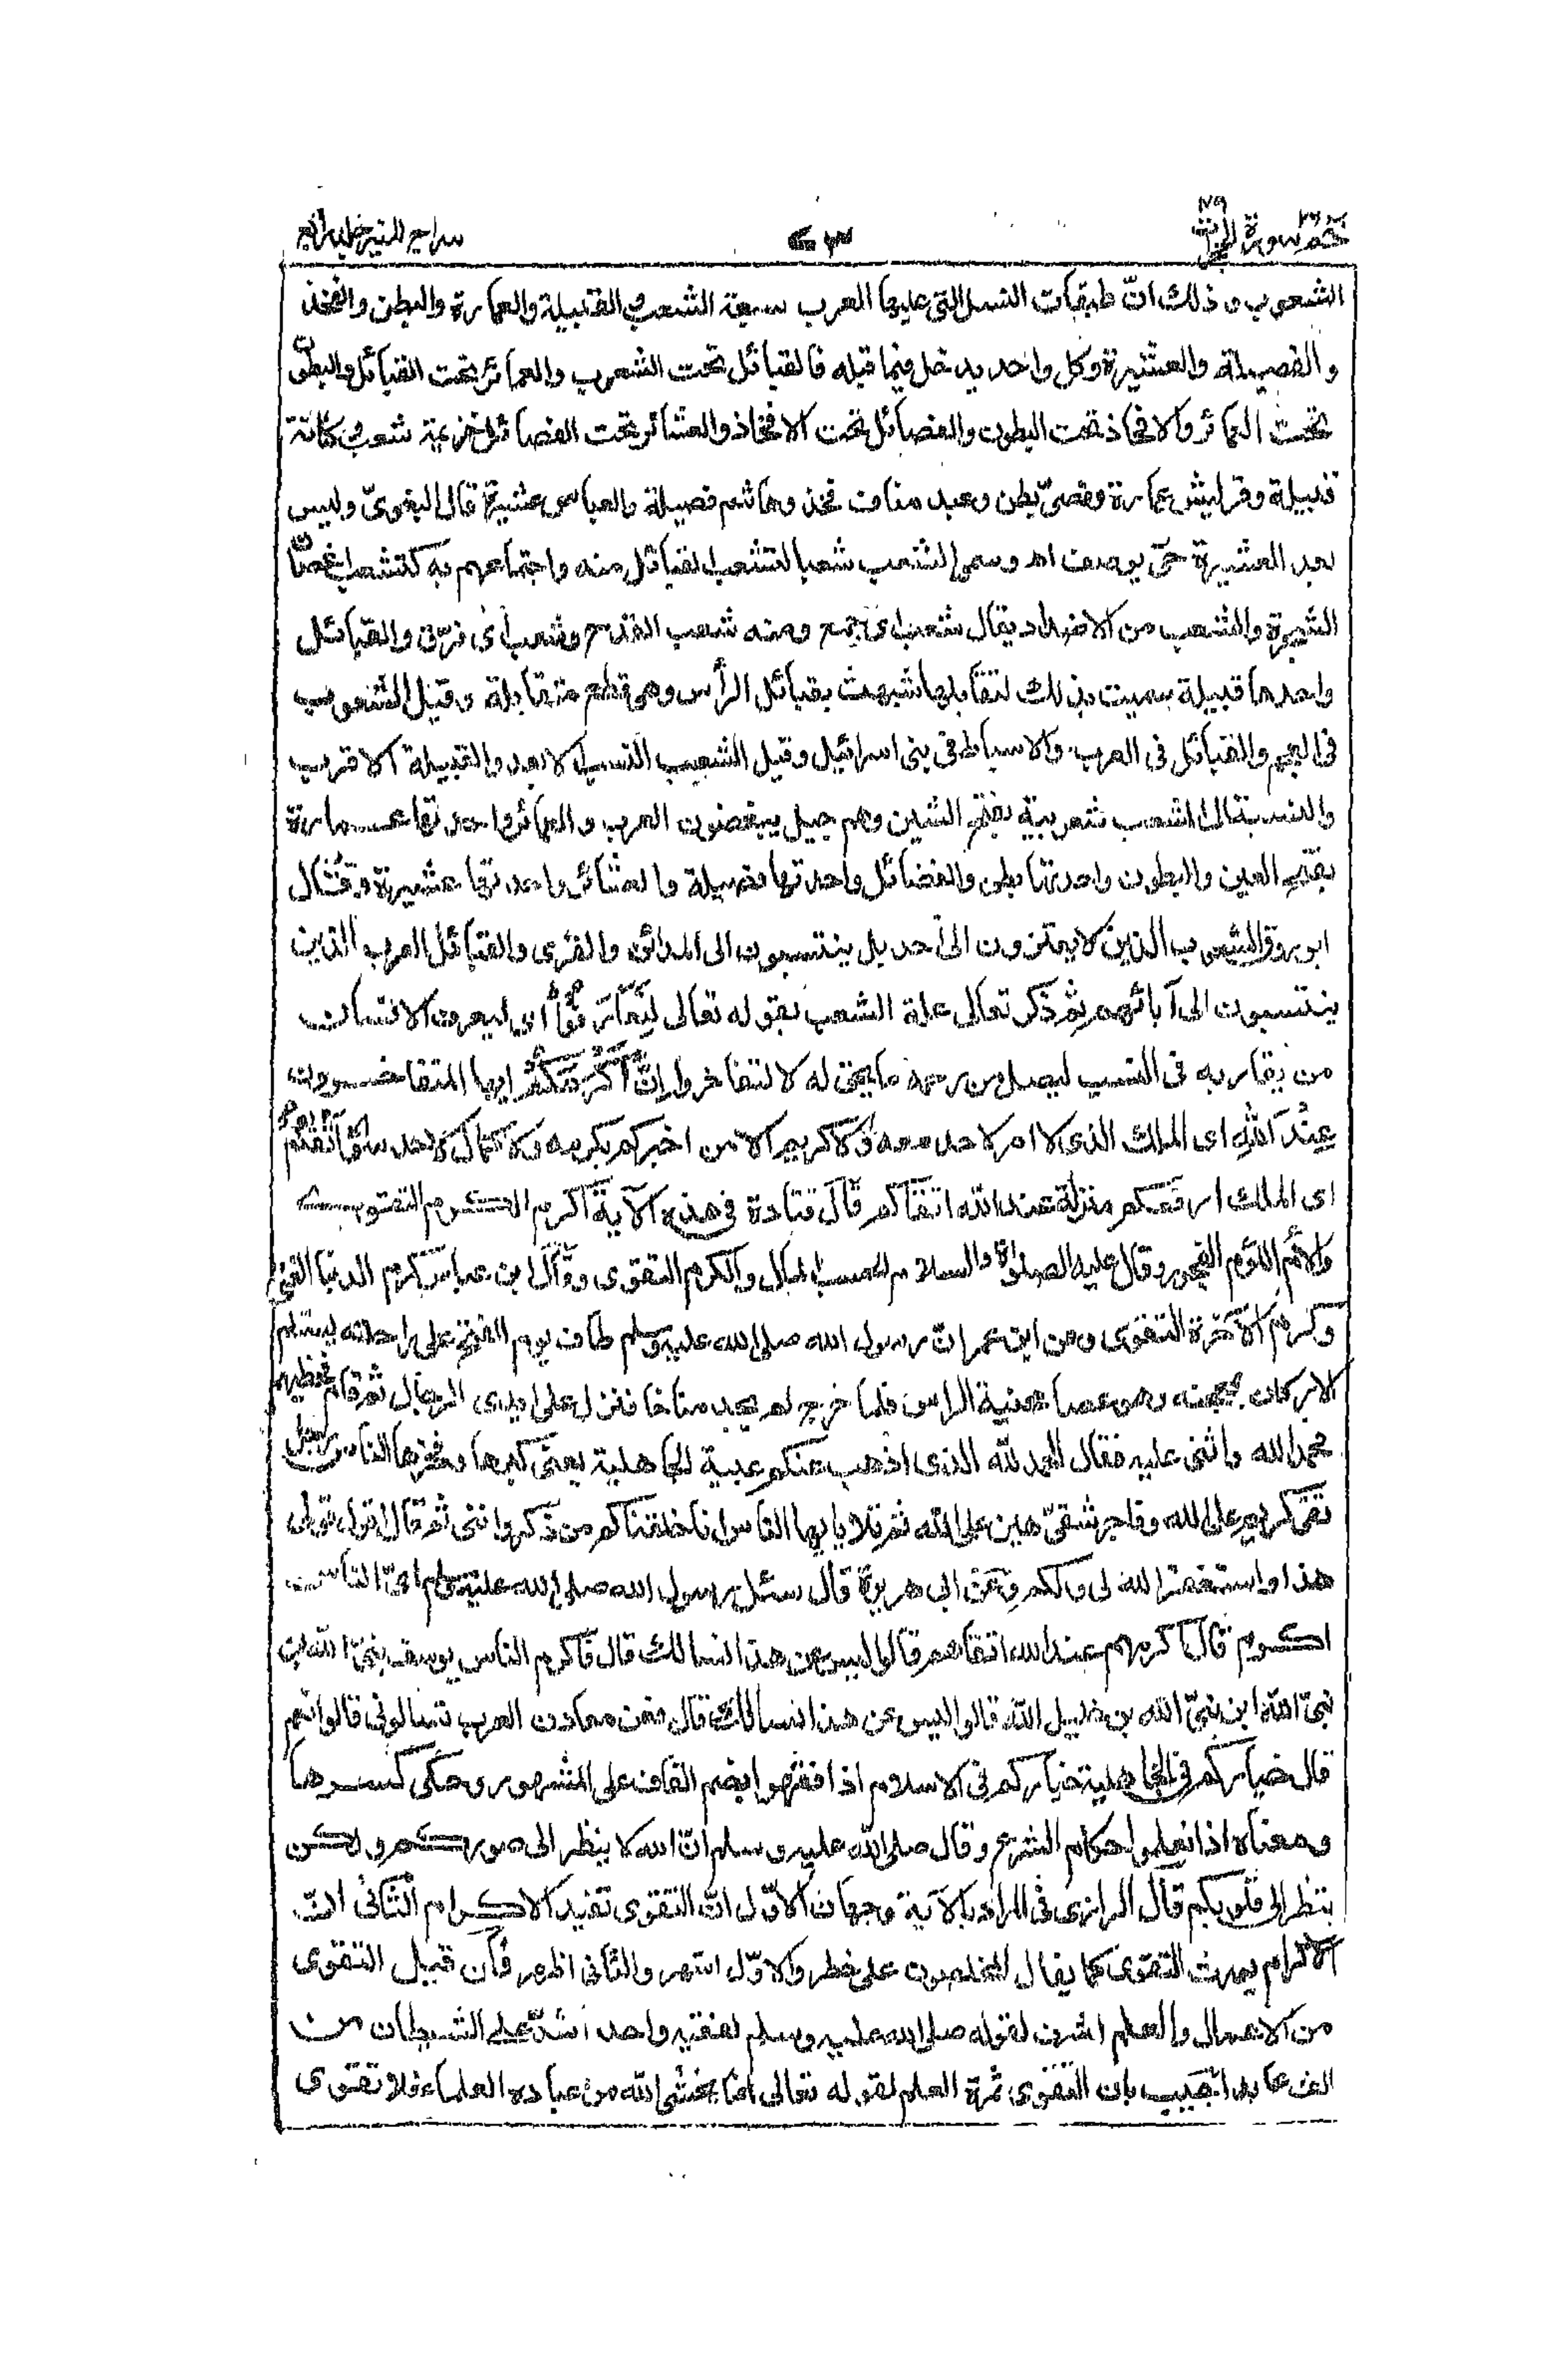 سراج المنير جلد رابع
الشعوب وذلك انّ طبقات النسل التى عليها العرب سبعة الشعب والقبيلة والعمارة والبطن والفخذ
والفصيلة والعشيرة وكل واحد يدخل فيما قبله فالقبائل تحت الشعوب والعمائر تحت القبائل والبطون
تحت العمائر والافخاذ تحت البطون والفصائل تحت الافخاذ والعشائر تحت الفصائل خزيمة شعب وكنانة
قبيلة وقريش عمارة وقصىّ بطن وعبد مناف فخذ وهاشم فصيلة والعباس عشيرة قال البغوىّ وليس
بعد العشيرة حىّ يوصف اه وسمى الشعب شعبا لتشعب القبائل منه واجتماعهم به كتشعب اغصان
الشجرة والشعب من الاضداد يقال شعب اى جمع ومنه شعب القدح وشعب اى فرّق والقبائل
واحدها قبيلة سميت بذلك لتقابلها شبهت بقبائل الرأس وهى قطع متقابلة وقيل الشعوب
فى العجم والقبائل فى العرب والاسباط فى بنى اسرائيل وقيل الشعب النسب الابعد والقبيلة الاقرب
والنسبة الى الشعب شعوبية بفتح الشين وهم جيل يبغضون العرب والعمائر واحدتها عمارة
بفتح العين والبطون واحدتها بطن والفصائل واحدتها فصيلة والعشائر واحدتها عشيرة وقال
ابو روق الشعوب الذين لا يعتزون الى احد بل ينتسبون الى المدائن والقرى والقبائل العرب الذين
ينتسبون الى آبائهم ثم ذكر تعالى علة الشعب بقوله تعالى لِتَعَارَفُوْا اى ليعرف الانسان
من يقاربه فى النسب ليصل من رحمه ما يحق له لا لتفاخروا اِنَّ اَكْرَمَكُمْ ايها المتفاخرون
عِنْدَ اللّٰهِ اى الملك الذى لا امر لاحد معه ولا كريم الا من اخبركم بكرمه ولا كمال لاحد سواه اَتْقٰكُمْ
اى الملك ارفعكم منزلة عند الله اتقاكم قال قتادة فى هذه الآية اكرم الكرم التقوى
والأم اللؤم الفجور وقال عليه الصلوٰة والسلام الحسب المال والكرم التقوى وقال ابن عباس كرم الدنيا الغنى
وكرم الآخرة التقوى وعن ابن عمر انّ رسول الله صلى الله عليه وسلم طاف يوم الفتح على راحلته يستلم
الاركان بمحجنه وهى عصا محنية الراس فلما خرج لم يجد مناخا فنزل على ايدى الرجال ثم قام فخطبهم
فحمد الله واثنى عليه فقال الحمد لله الذى اذهب عنكم عبية الجاهلية يعنى كبرها وفخرها الناس رجلان
تقى كريم على الله وفاجر شقىّ هين على الله ثم تلا يايها الناس انا خلقناكم من ذكر وانثى ثم قال اقول قولى
هذا واستغفر الله لى ولكم وعن ابى هريرة قال سئل رسول الله صلى الله عليه وسلم اىّ الناس
اكرم قال اكرمهم عند الله اتقاهم قالوا ليس عن هذا نسالك قال فاكرم الناس يوسف نبىّ الله ابن
نبىّ الله ابن نبىّ الله بن خليل الله قالوا ليس عن هذا نسالك قال فعن معادن العرب تسالونى قالوا نعم
قال خياركم فى الجاهلية خياركم فى الاسلام اذا فقهوا بضم القاف على المشهور وحكى كسرها
ومعناه اذا تعلموا احكام الشرع وقال صلى الله عليه وسلم انّ الله لا ينظر الى صوركم ولكن
ينظر الى قلوبكم قال الرازى فى المراد بالآية وجهان الاوّل انّ التقوى تفيد الاكرام الثانى انّ
الاكرام يورث التقوى كما يقال المخلصون على خطر والاوّل اشهر والثانى اظهر فان قيل التقوى
من الاعمال والعلم اشرف لقوله صلى الله عليه وسلم لفقيه واحد اشدّ على الشيطان من
الف عابد اجيب بان التقوى ثمرة العلم لقوله تعالى انما يخشى الله من عباده العلماء فلا تقوى